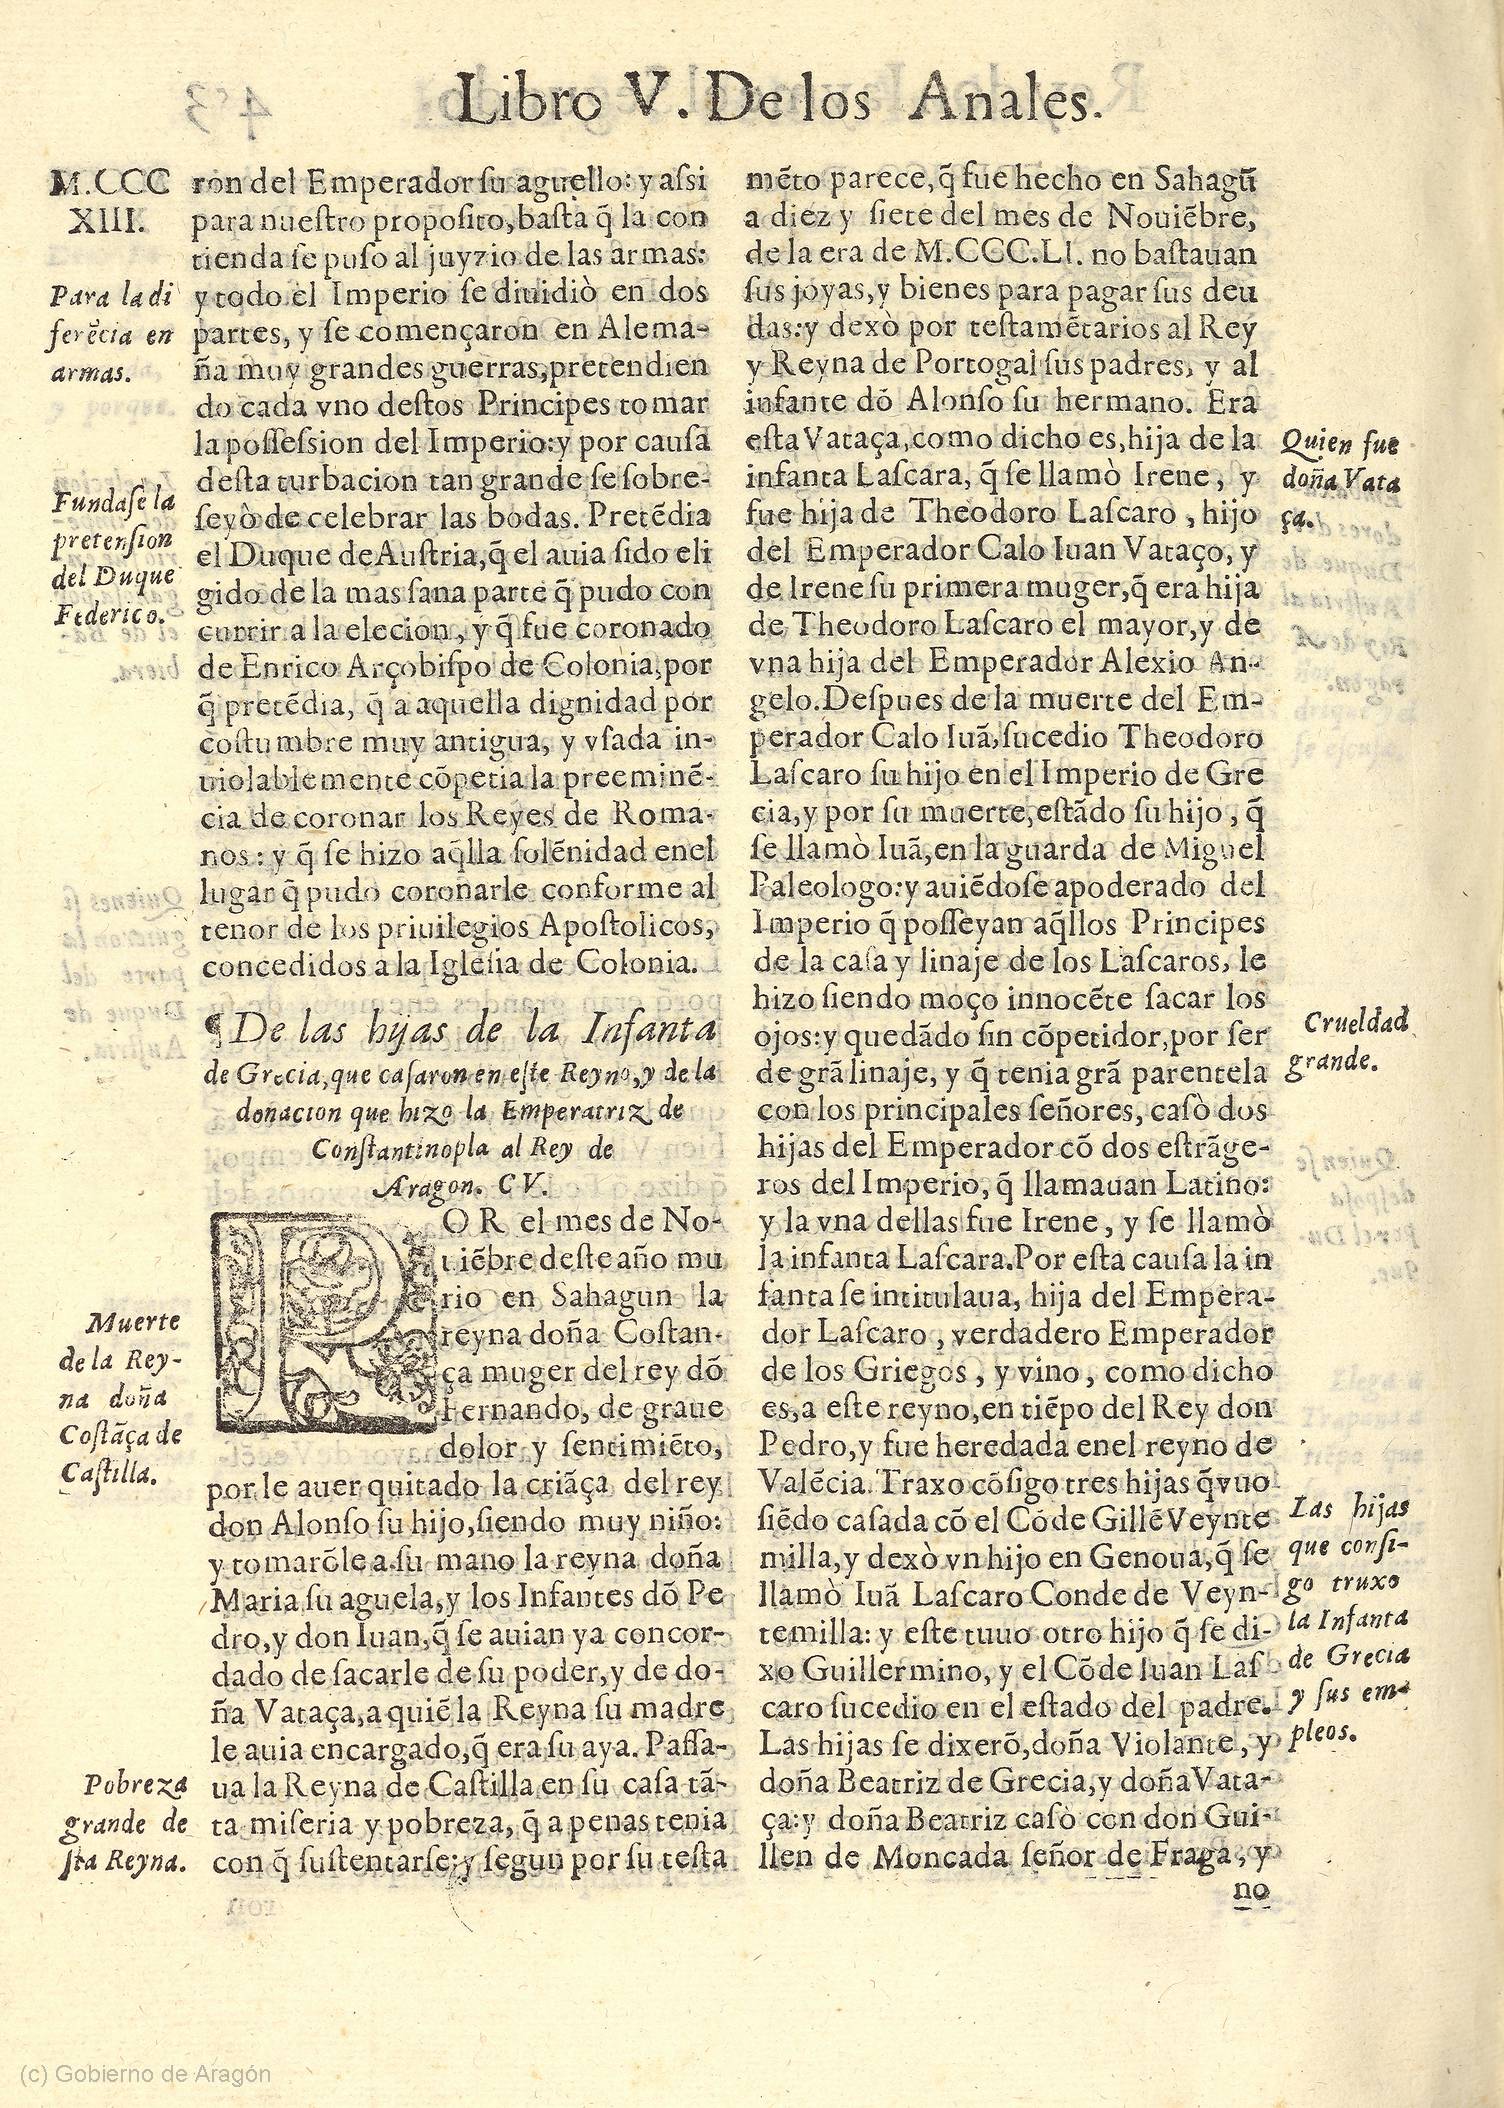 Libro V. De los Anales.
M.CCC
XIII.
Para la di
ferẽcia en
armas.
Fundaſe la
pretenſion
del Duque
Federico.
Muerte
de la Rey-
na doña
Coſtãça de
Caſtilla.
Pobreza
grande de
ſta Reyna.
ron del Emperador ſu aguello: y aſsi
para nueſtro propoſito, baſta q̃ la con
tienda ſe puſo al juyzio de las armas:
y todo el Imperio ſe diuidiò en dos
partes, y ſe començaron en Alema-
ña muy grandes guerras, pretendien
do cada vno deſtos Principes tomar
la poſſeſsion del Imperio: y por cauſa
deſta turbacion tan grande ſe ſobre-
ſeyò de celebrar las bodas. Pretẽdia
el Duque de Auſtria, q̃ el auia ſido eli
gido de la mas ſana parte q̃ pudo con
currir a la elecion, y q̃ fue coronado
de Enrico Arçobiſpo de Colonia, por
q̃ pretẽdia, q̃ a aquella dignidad por
coſtumbre muy antigua, y vſada in-
uiolablemente cõpetia la preeminẽ-
cia de coronar los Reyes de Roma-
nos: y q̃ ſe hizo aq̃lla ſolẽnidad enel
lugar q̃ pudo coronarle conforme al
tenor de los priuilegios Apoſtolicos,
concedidos a la Igleſia de Colonia.
¶ De las hijas de la Infanta
de Grecia, que caſaron en eſte Reyno, y de la
donacion que hizo la Emperatriz de
Conſtantinopla al Rey de
Aragon. CV.
POR el mes de No-
uiẽbre deſte año mu
rio en Sahagun la
reyna doña Coſtan-
ça muger del rey dõ
Fernando, de graue
dolor y ſentimiẽto,
por le auer quitado la criãça del rey
don Alonſo ſu hijo, ſiendo muy niño:
y tomarõle a ſu mano la reyna doña
Maria ſu aguela, y los Infantes dõ Pe
dro, y don Iuan, q̃ ſe auian ya concor-
dado de ſacarle de ſu poder, y de do-
ña Vataça, a quiẽ la Reyna ſu madre
le auia encargado, q̃ era ſu aya. Paſſa-
ua la Reyna de Caſtilla en ſu caſa tã-
ta miſeria y pobreza, q̃ a penas tenia
con q̃ ſuſtentarſe: y ſegun por ſu teſta
mẽto parece, q̃ fue hecho en Sahagũ
a diez y ſiete del mes de Nouiẽbre,
de la era de M.CCC.LI. no baſtauan
ſus joyas, y bienes para pagar ſus deu
das: y dexò por teſtamẽtarios al Rey
y Reyna de Portogal ſus padres, y al
infante dõ Alonſo ſu hermano. Era
eſta Vataça, como dicho es, hija de la
infanta Laſcara, q̃ ſe llamò Irene, y
fue hija de Theodoro Laſcaro, hijo
del Emperador Calo Iuan Vataço, y
de Irene ſu primera muger, q̃ era hija
de Theodoro Laſcaro el mayor, y de
vna hija del Emperador Alexio An-
gelo. Deſpues de la muerte del Em-
perador Calo Iuã, ſucedio Theodoro
Laſcaro ſu hijo en el Imperio de Gre
cia, y por ſu muerte, eſtãdo ſu hijo, q̃
ſe llamò Iuã, en la guarda de Miguel
Paleologo: y auiẽdoſe apoderado del
Imperio q̃ poſſeyan aq̃llos Principes
de la caſa y linaje de los Laſcaros, le
hizo ſiendo moço innocẽte ſacar los
ojos: y quedãdo ſin cõpetidor, por ſer
de grã linaje, y q̃ tenia grã parentela
con los principales ſeñores, caſò dos
hijas del Emperador cõ dos eſtrãge-
ros del Imperio, q̃ llamauan Latino:
y la vna dellas fue Irene, y ſe llamò
la infanta Laſcara. Por eſta cauſa la in
fanta ſe intitulaua, hija del Empera-
dor Laſcaro, verdadero Emperador
de los Griegos, y vino, como dicho
es, a eſte reyno, en tiẽpo del Rey don
Pedro, y fue heredada enel reyno de
Valẽcia. Traxo cõſigo tres hijas q̃ vuo
ſiẽdo caſada cõ el Cõde Gillẽ Veynte
milla, y dexò vn hijo en Genoua, q̃ ſe
llamò Iuã Laſcaro Conde de Veyn-
temilla: y eſte tuuo otro hijo q̃ ſe di-
xo Guillermino, y el Cõde Iuan Laſ
caro ſucedio en el eſtado del padre.
Las hijas ſe dixerõ, doña Violante, y
doña Beatriz de Grecia, y doña Vata-
ça: y doña Beatriz caſò con don Gui-
llen de Moncada ſeñor de Fraga, y
no
Quien fue
doña Vata
ça.
Crueldad
grande.
Las hijas
que conſi-
go truxo
la Infanta
de Grecia
y ſus em-
pleos.
(c) Gobierno de Aragón